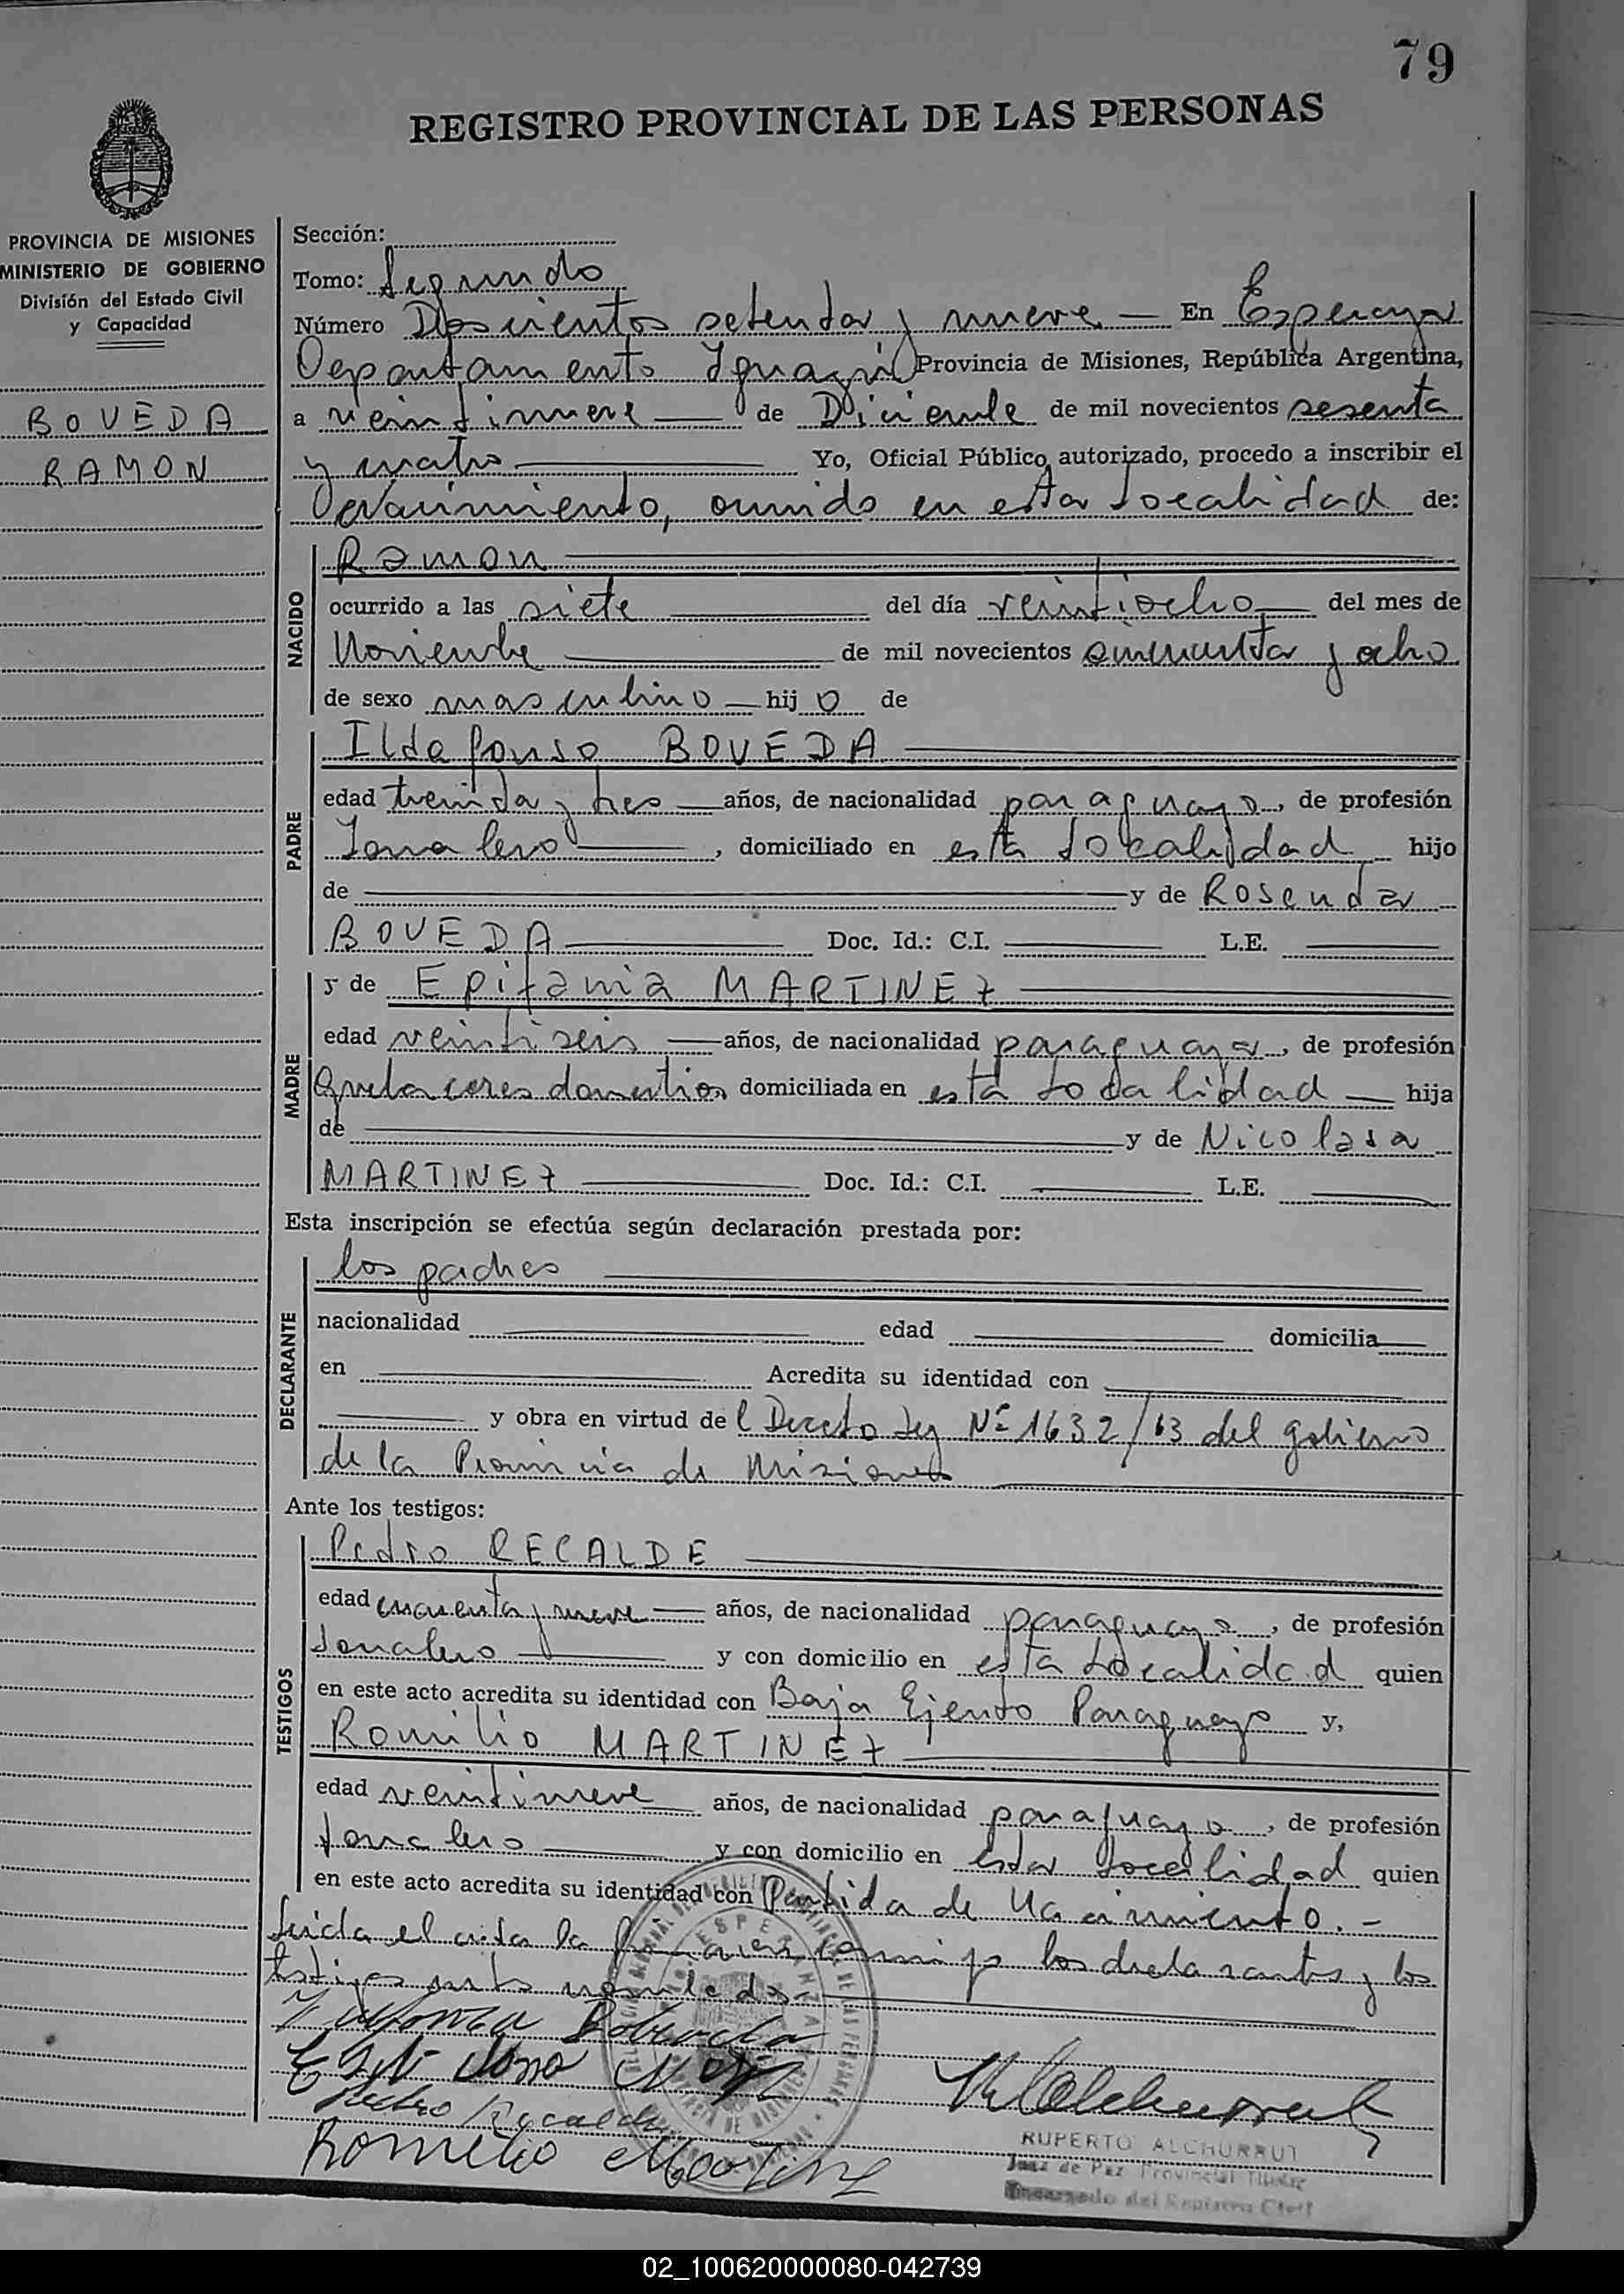 79
REGISTRO PROVINCIAL DE LAS PERSONAS
PROVINCIA DE MISIONES
MINISTERIO DE GOBIERNO
División del Estado Civil
y Capacidad
BOVEDA
RAMON
Sección:
Tomo: Segundo
Número Doscientos setenta y nueve — En Esperanza
Departamento Iguazú Provincia de Misiones, República Argentina,
a veintinueve de Diciembre de mil novecientos sesenta
y cuatro Yo, Oficial Público autorizado, procedo a inscribir el
Nacimiento, ocurrido en esta Localidad de:
NACIDO
Ramon
ocurrido a las siete del día veintiocho del mes de
Noviembre de mil novecientos cincuenta y ocho
de sexo masculino hij o de
PADRE
Ildefonso BOVEDA
edad treinta y tres años, de nacionalidad paraguayo, de profesión
Jornalero, domiciliado en esta Localidad hijo
de y de Rosenda
BOVEDA Doc. Id.: C.I. L.E.
MADRE
y de Epifania MARTINEZ
edad veintiseis años, de nacionalidad paraguaya, de profesión
Quehaceres domesticos domiciliada en esta Localidad hija
de y de Nicolasa
MARTINEZ Doc. Id.: C.I. L.E.
Esta inscripción se efectúa según declaración prestada por:
DECLARANTE
los padres
nacionalidad edad domicilia
en Acredita su identidad con
y obra en virtud de l Decreto Ley Nº 1632/63 del gobierno
de la Provincia de Misiones
Ante los testigos:
TESTIGOS
Pedro RECALDE
edad cuarenta y nueve años, de nacionalidad paraguayo, de profesión
Jornalero y con domicilio en esta Localidad quien
en este acto acredita su identidad con Baja Ejento Paraguayo y,
Romilio MARTINEZ
edad veintinueve años, de nacionalidad paraguayo, de profesión
Jornalero y con domicilio en esta Localidad quien
en este acto acredita su identidad con Partida de Nacimiento.-
Leida el acta la firman conmigo los declarantes y los
testigos
Pedro Recalde
Romilio Martinez
RUPERTO ALCHURRUT
Juez de Paz Provincial Titular
Encargado del Registro Civil
02_100620000080-042739